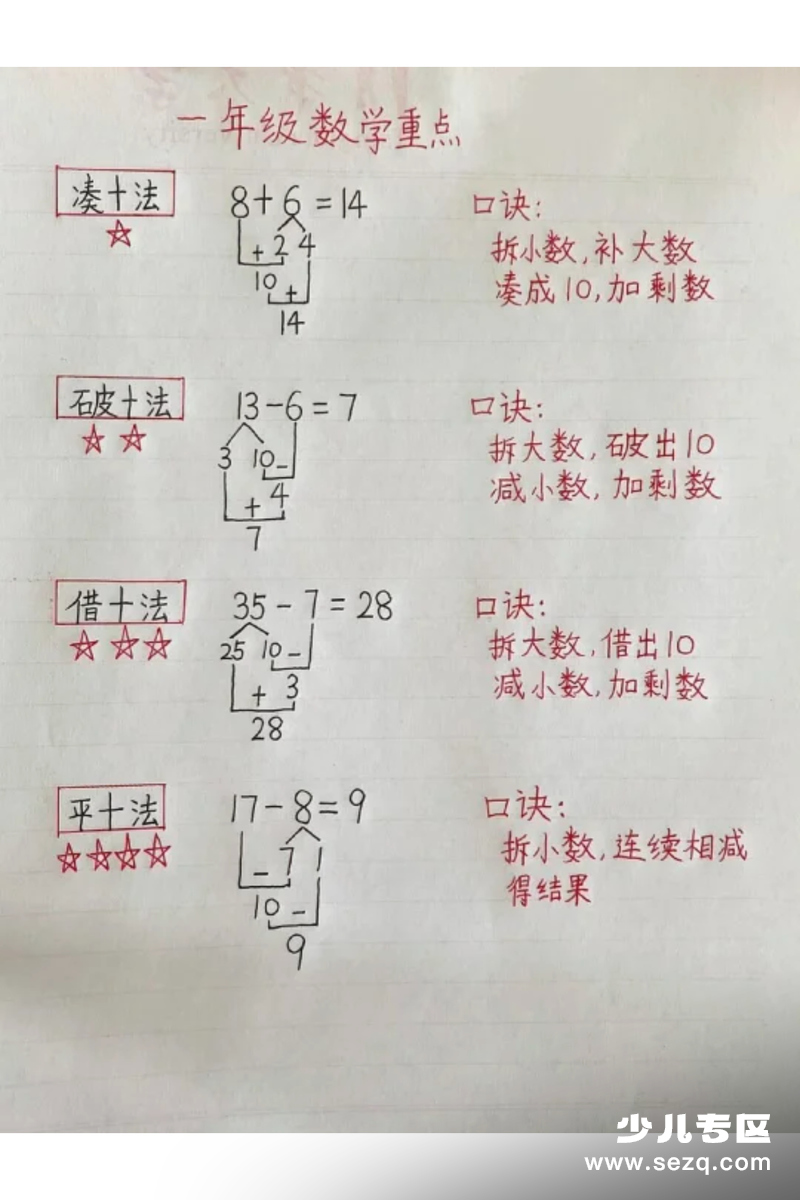 一年级数学重点
凑十法
8+6=14
+2 4
10 +
14
口诀:
拆小数,补大数
凑成10,加剩数
破十法
13-6=7
3 10-
+4
7
口诀:
拆大数,破出10
减小数,加剩数
借十法
35-7=28
25 10-
+3
28
口诀:
拆大数,借出10
减小数,加剩数
平十法
17-8=9
-7 1
10-
9
口诀:
拆小数,连续相减
得结果
少儿专区
www.sezq.com